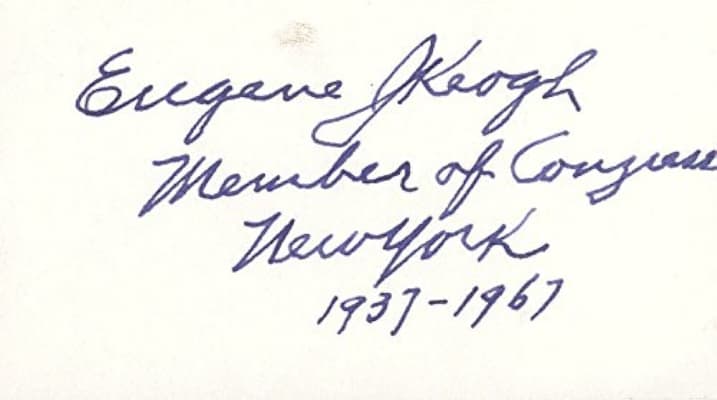 Eugene J Keogh
Member of Congress
New York
1937-1967